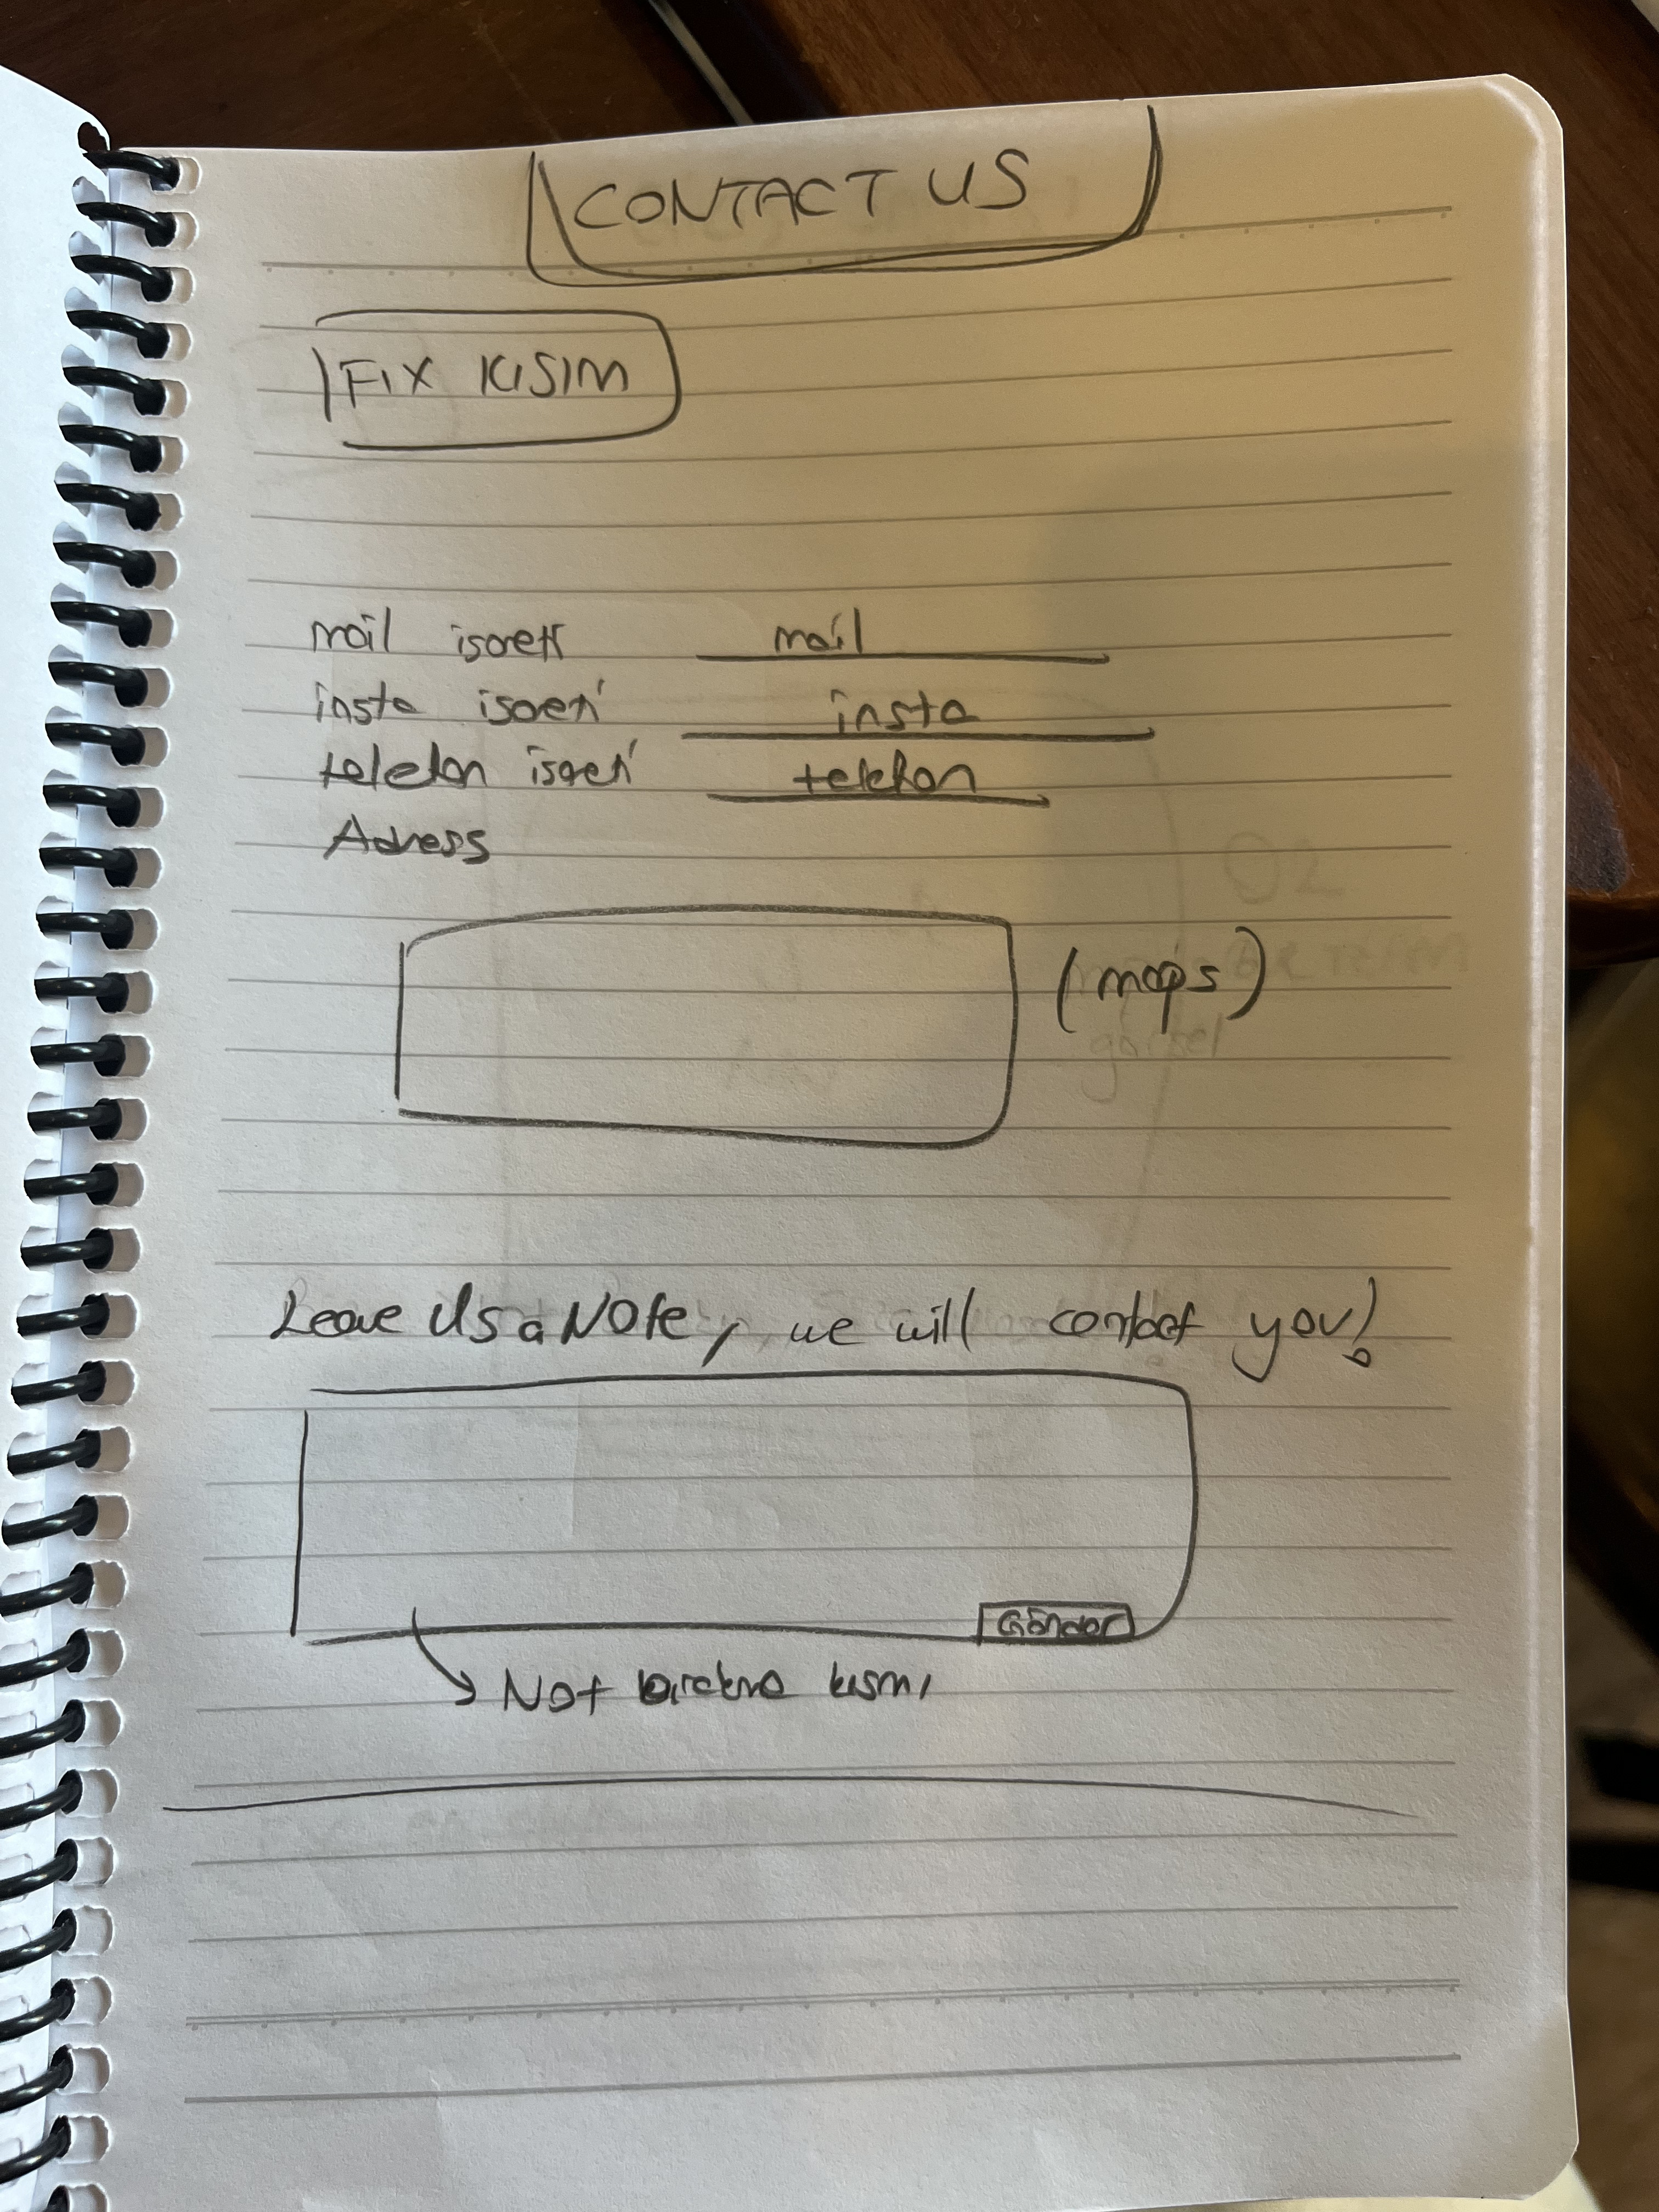 CONTACT US
FIX KISIM
mail isareti mail
insta isareti insta
telefon isareti telefon
Adress
(maps)
Leave Us a Note, we will contact you!
Gönder
Not bırakma kısmı